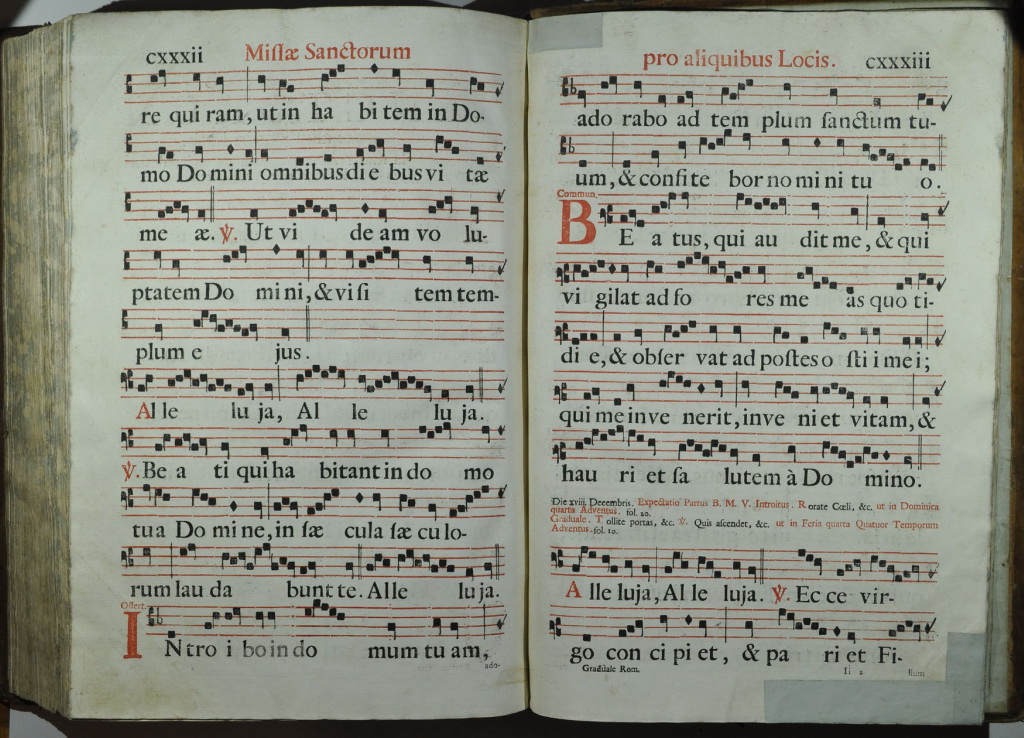 cxxxii Missæ Sanctorum
re qui ram, ut in ha bi tem in Do-
mo Do mini omnibus di e bus vi tæ
me æ. ℣. Ut vi de am vo lu-
ptatem Do mi ni, & vi si tem tem-
plum e jus.
Al le lu ja, Al le lu ja.
℣. Be a ti qui ha bitant in do mo
tua Do mi ne, in sæ cula sæ cu lo-
rum lau da bunt te. Alle lu ja.
Offert.
INtro i bo in do mum tu am,
ado-
pro aliquibus Locis. cxxxiii
ado rabo ad tem plum sanctum tu-
um, & confite bor no mi ni tu o.
Commun.
BE a tus, qui au dit me, & qui
vi gilat ad fo res me as quo ti-
di e, & obser vat ad postes o sti i mei;
qui me inve nerit, inve ni et vitam, &
hau ri et sa lutem à Do mino.
Die xviii. Decembris. Expectatio Partus B. M. V. Introitus. Rorate Cœli, &c. ut in Dominica
quarta Adventus. fol. 20.
Graduale. Tollite portas, &c. ℣. Quis ascendet, &c. ut in Feria quarta Quatuor Temporum
Adventus. fol. 10.
Alle luja, Al le luja. ℣. Ec ce vir-
go con ci pi et, & pa ri et Fi-
Graduale Rom. Ii 2 lium